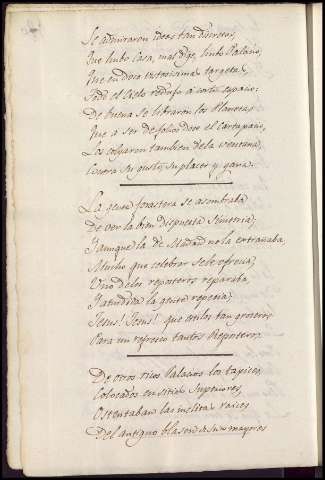 Se admiraron ideas tan discretas,
Que hubo Casa, mas digo, hubo Palacio,
Que en doce vistosisimas targetas,
Todo el Cielo redujo à corto espacio:
De buena se libraron los Planetas
Que a ser de folio doce el Cartapacio,
Los colgaron tambien de la ventana,
contra su gusto, su placer y gana.
La gente forastera se asombraba
De ver la bien dispuesta Simetria,
Y aunque la de Madrid no la extrañaba,
Mucho que celebrar se le ofrecia;
Uno de los reposteros reparaba,
Y aturdida la gente repetia,
Jesus! Jesus! que estilos tan groseros
Para un refresco tantos Reposteros.
De otros ricos Palacios los tapices,
Colocados en sitios Superiores,
Ostentaban las inclitas raices
Del antiguo blason de sus mayores